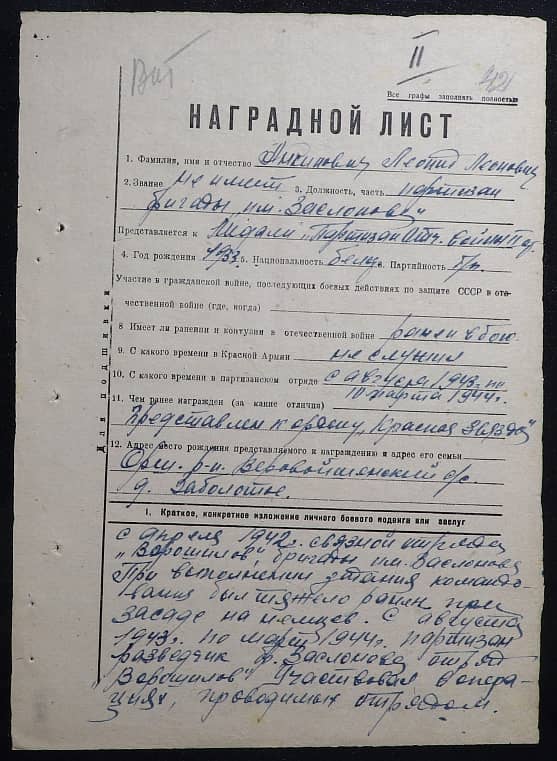 II
42
Все графы заполнять полностью
НАГРАДНОЙ ЛИСТ
1. Фамилия, имя и отчество Леонид Леонович
2. Звание не имеет 3. Должность, часть партизан
бригады им. Заслонова"
Представляется к Медали „Партизан Отеч. войны II ст.
4. Год рождения 1933 5. Национальность белц. 6. Партийность б/п.
Участие в гражданской войне, последующих боевых действиях по защите СССР в оте-
чественной войне (где, когда)
8 Имеет ли ранения и контузии в отечественной войне ранен в бою
9. С какого времени в Красной Армии не служил
10. С какого времени в партизанском отряде с августа 1943 г. по
март 1944 г.
11. Чем ранее награжден (за какие отличия)
Представлен к ордену „Красная Звезда"
12. Адрес место рождения представляемого к награждению и адрес его семьи
Орш. р-н. с/с
д. Заболотье.
Для подшивки
I. Краткое, конкретное изложение личного боевого подвига или заслуг
с апреля 1942 г. связной отряда
„Ворошилов", бригады им. Заслонова
При выполнении задания командо-
вания был тяжело ранен при
засаде на немцев. С августа
1943 г. по март 1944 г. партизан
разведчик бр. Заслонова отряд
Ворошилов" Участвовал в опера-
циях, проводимых отрядом.